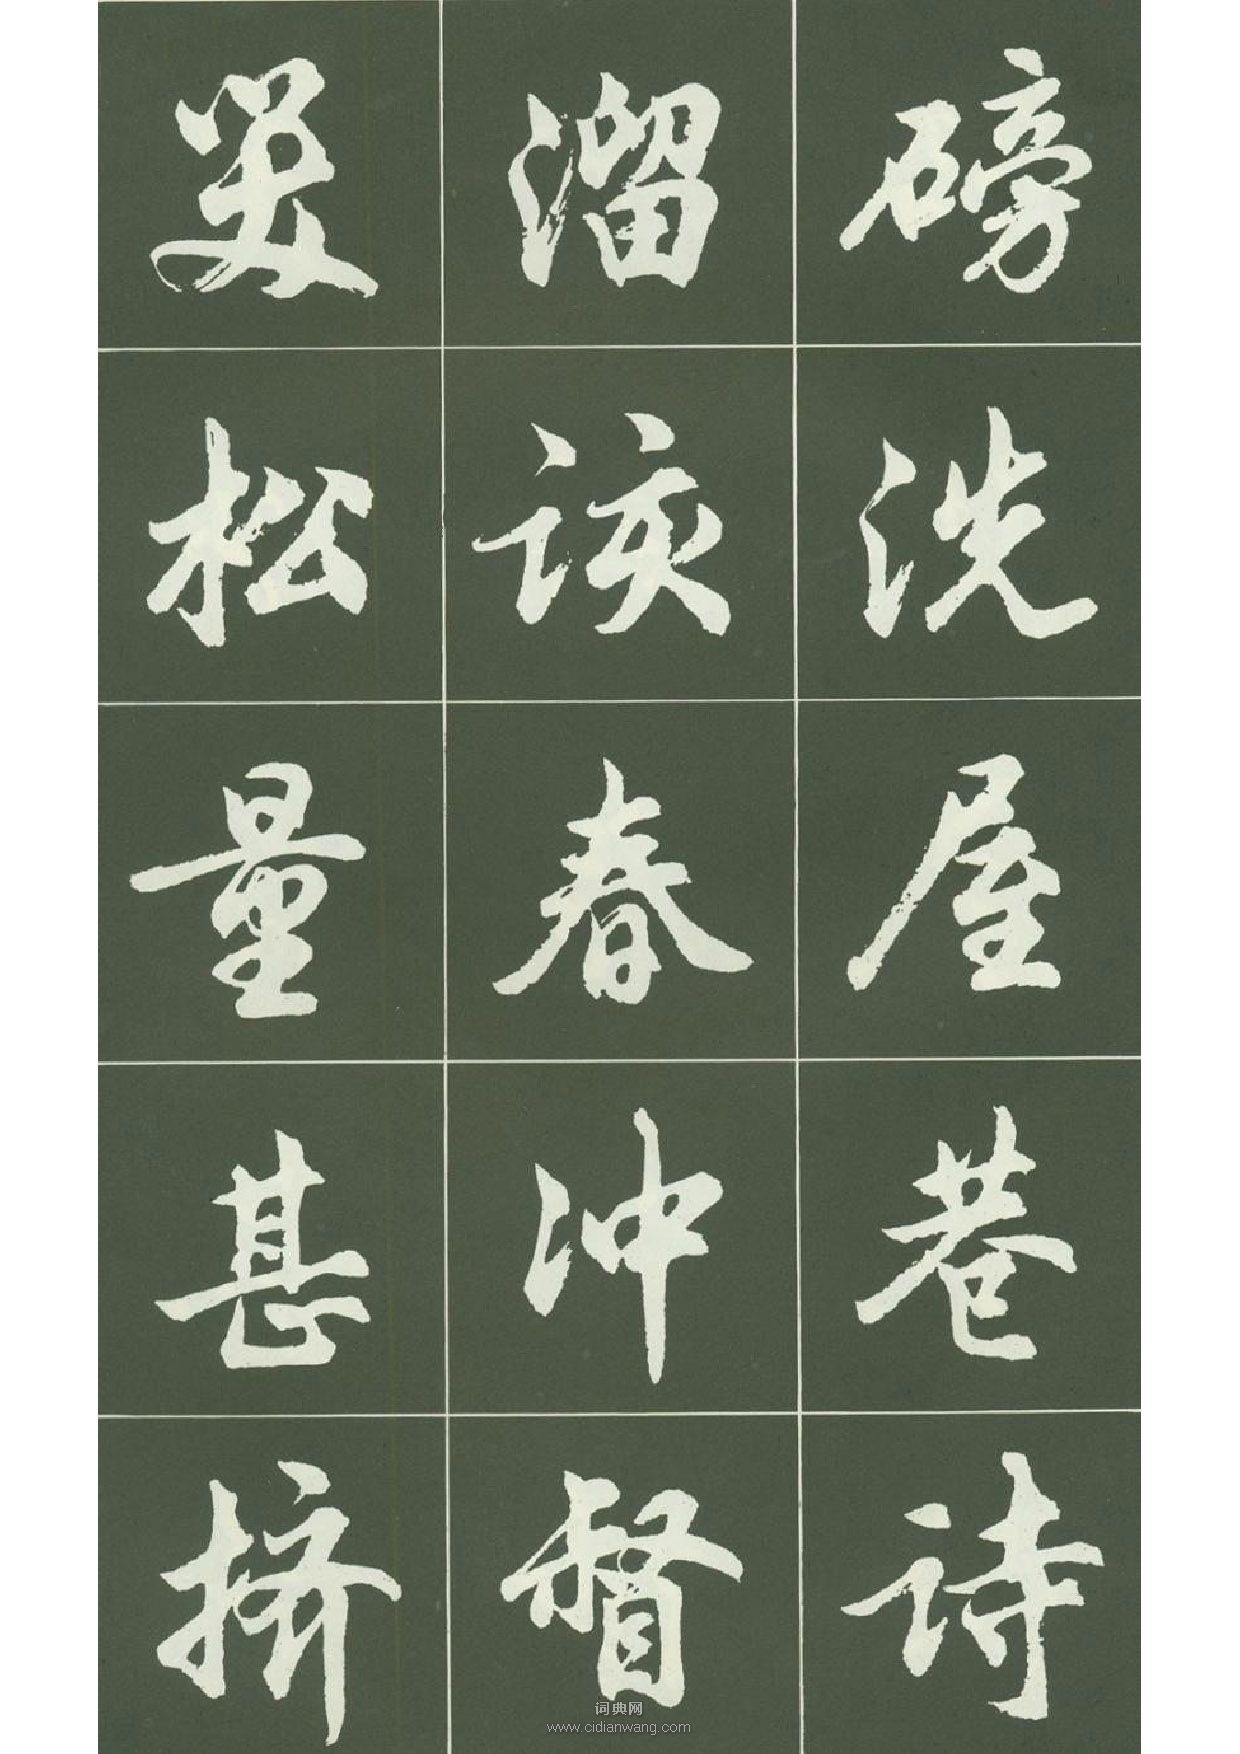 磅洗屋巷诗
溜该春冲督
松量甚挤
词典网
www.cidianwang.com